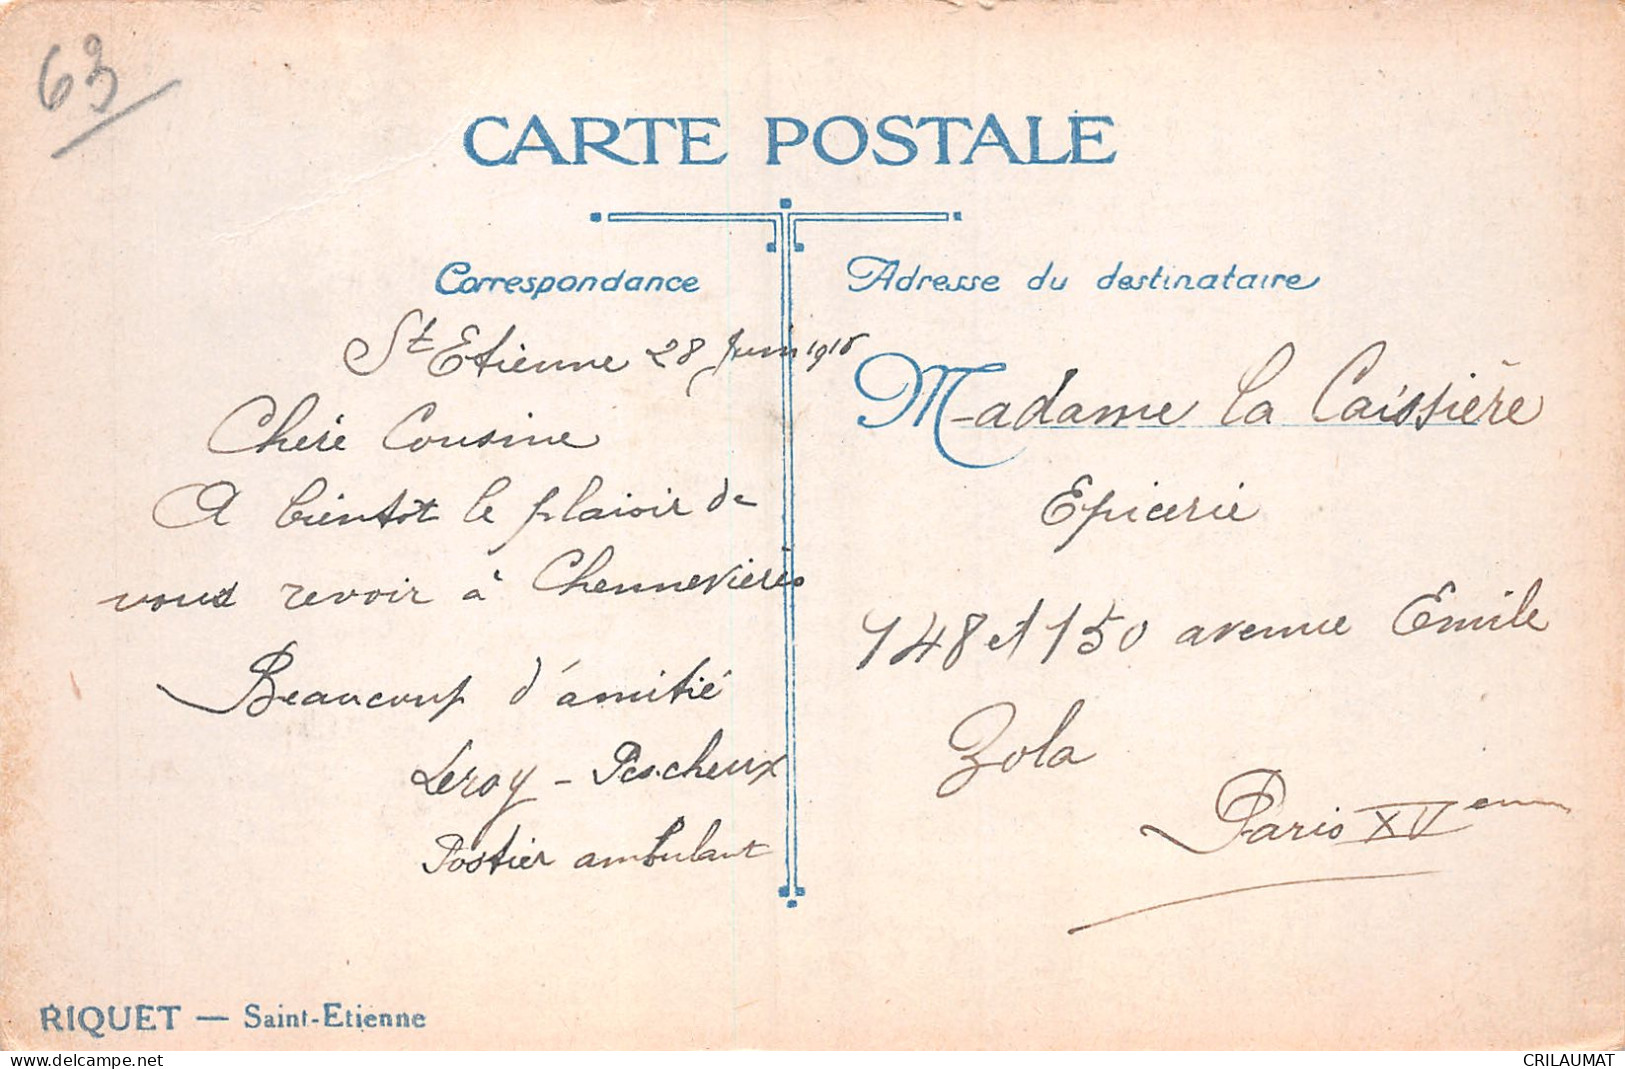 63
CARTE POSTALE
Correspondance
Adresse du destinataire
St Etienne 28 Juin
Chère Cousine
A bientot le plaisir de
vous revoir à Chennevières
Beaucoup d'amitié
Leroy -
Postier ambulant
Madame la Caissière
Epicerie
148 et 150 avenue Emile
Zola
Paris XVem
RIQUET — Saint-Etienne
www.delcampe.net
CRILAUMAT